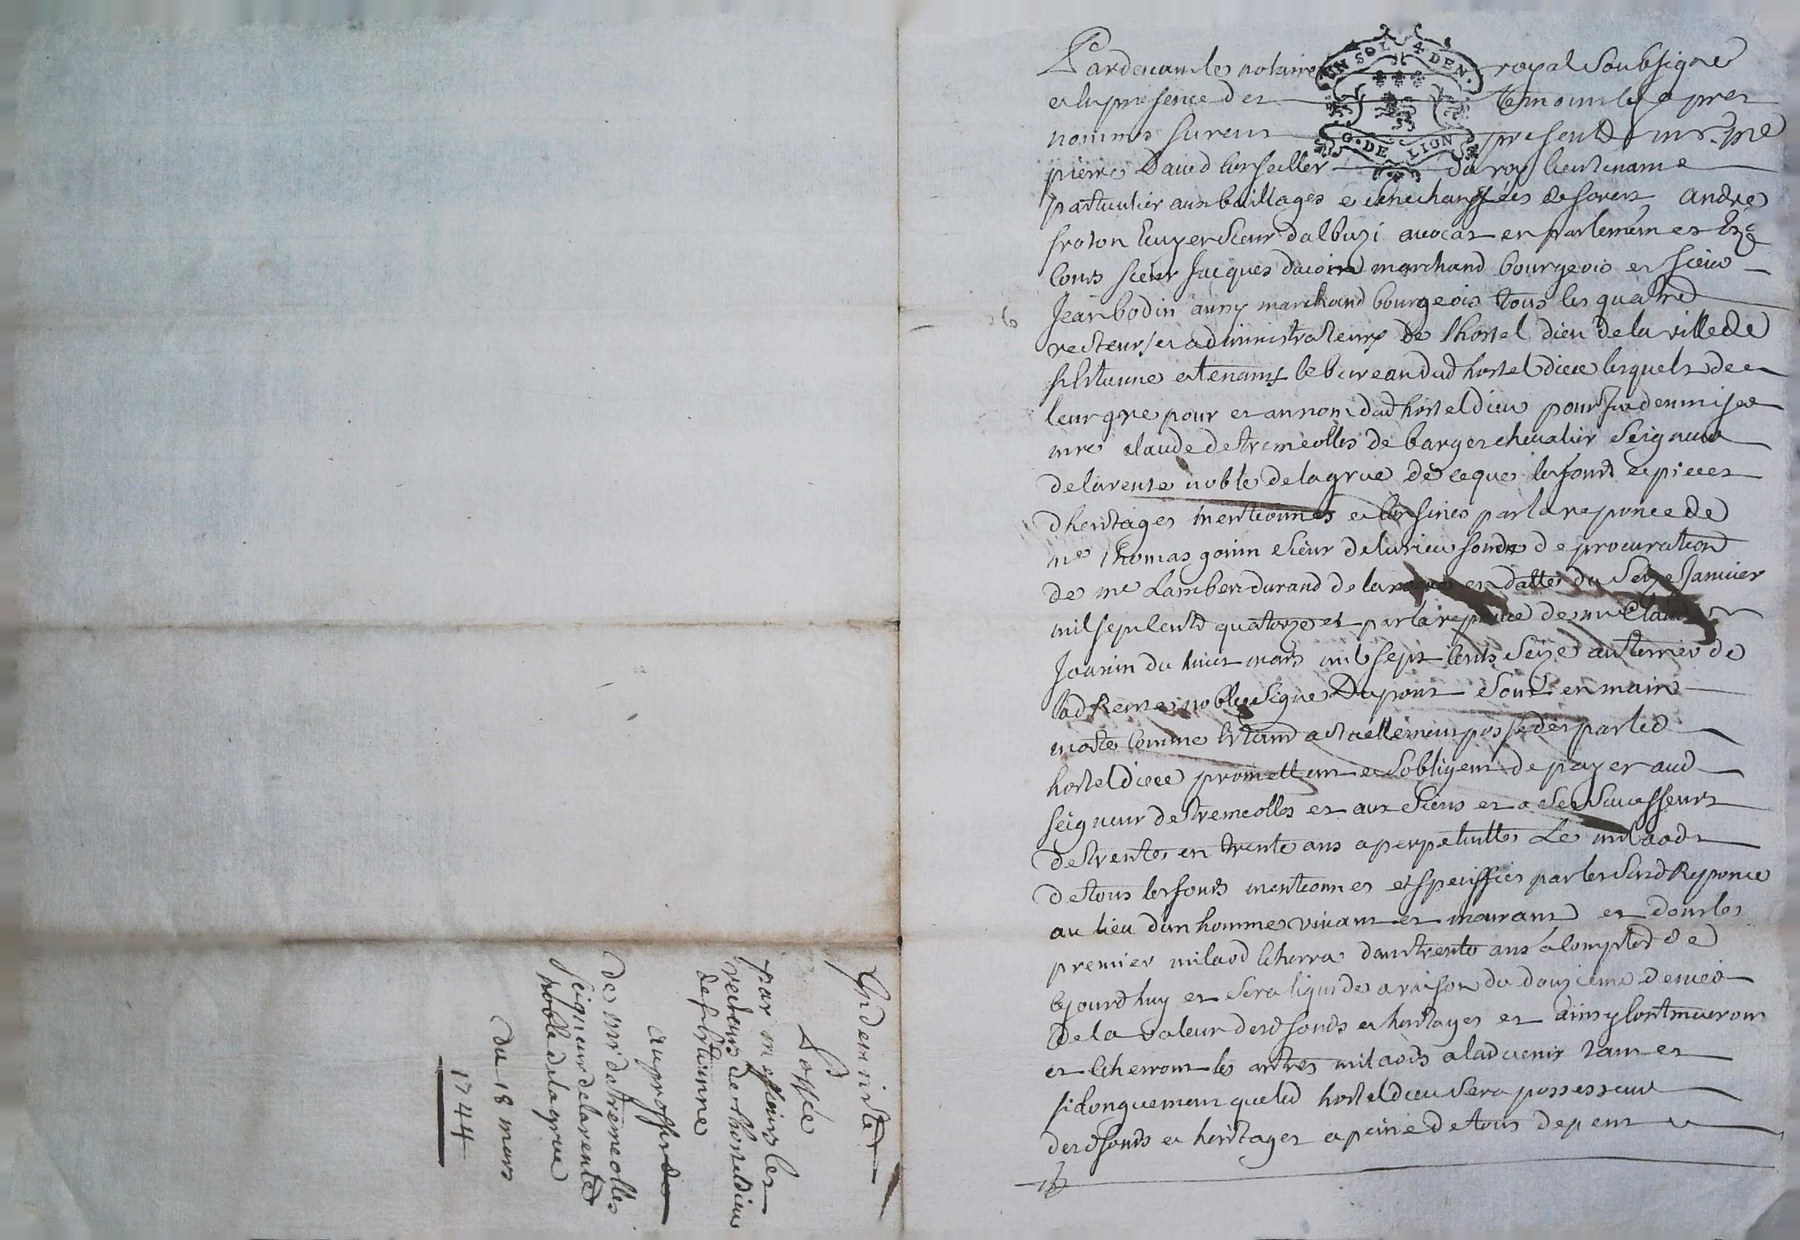 Pardevant le notaire royal soubsigné
et en presence des temoins cy apres
nommes furent presents mr. me
pierre David conseiller du roy lieutenant
particulier aux bailliages et senechaussées de forest andré
froton Ecuyer sieur dalbuzi avocat en parlement et Ez
Cours sieur Jacques david marchand bourgeois et sieur
Jean bodin aussy marchand bourgeois tous les quatre
recteurs et administrateurs de lhostel dieu de la ville de
st Estienne et tenants le bureau dud hostel dieu lesquels de
leur gre pour et au nom dud hostel dieu pour Indemniser
mre claude destremeolles de barges chevalier Seigneur
de la rente noble de la grue de ce que les fonds et pieces
dheritages mentionnes et Confines par la reponce de
me Thomas gonin sieur de la rieu fondé de procuration
de me Lambert durand de la en datte du Seize Janvier
mil sept cents quatorze et par la reponce de me Claude
Jouvin du huit mars mil sept cents Seize au terrier de
lad Rente noble Signé Dupont sont en main
morte comme Estant actuellement possedes par led
hostel dieu promettent et sobligent de payer aud
seigneur destremeolles et aux siens et a ses successeurs
de trente en trente ans a perpetuitté Le milaods
de tous les fonds mentionnes et speciffies par les susd Reponce
au lieu dun homme vivant et mourant et dont le
premier milaod Echerra dans trente ans a compter de
cejourdhuy et sera liquidé a raison du douzieme denier
de la valeur desd fonds et heritages et ainsy continueront
et Echerront les autres milaods a ladvenir tant et
si longuement que led hostel dieu sera possesseur
desd fonds et heritages a peine de tous depens
6
Indemnitté
Passée
par messieurs les
recteurs de lhosteldieu
de st Etienne
au proffit de
de mr destremeolles
seigneur de la rente
noble de la grue
du 18 mars
1744
UN SOL 4 DEN.
G. DE LION